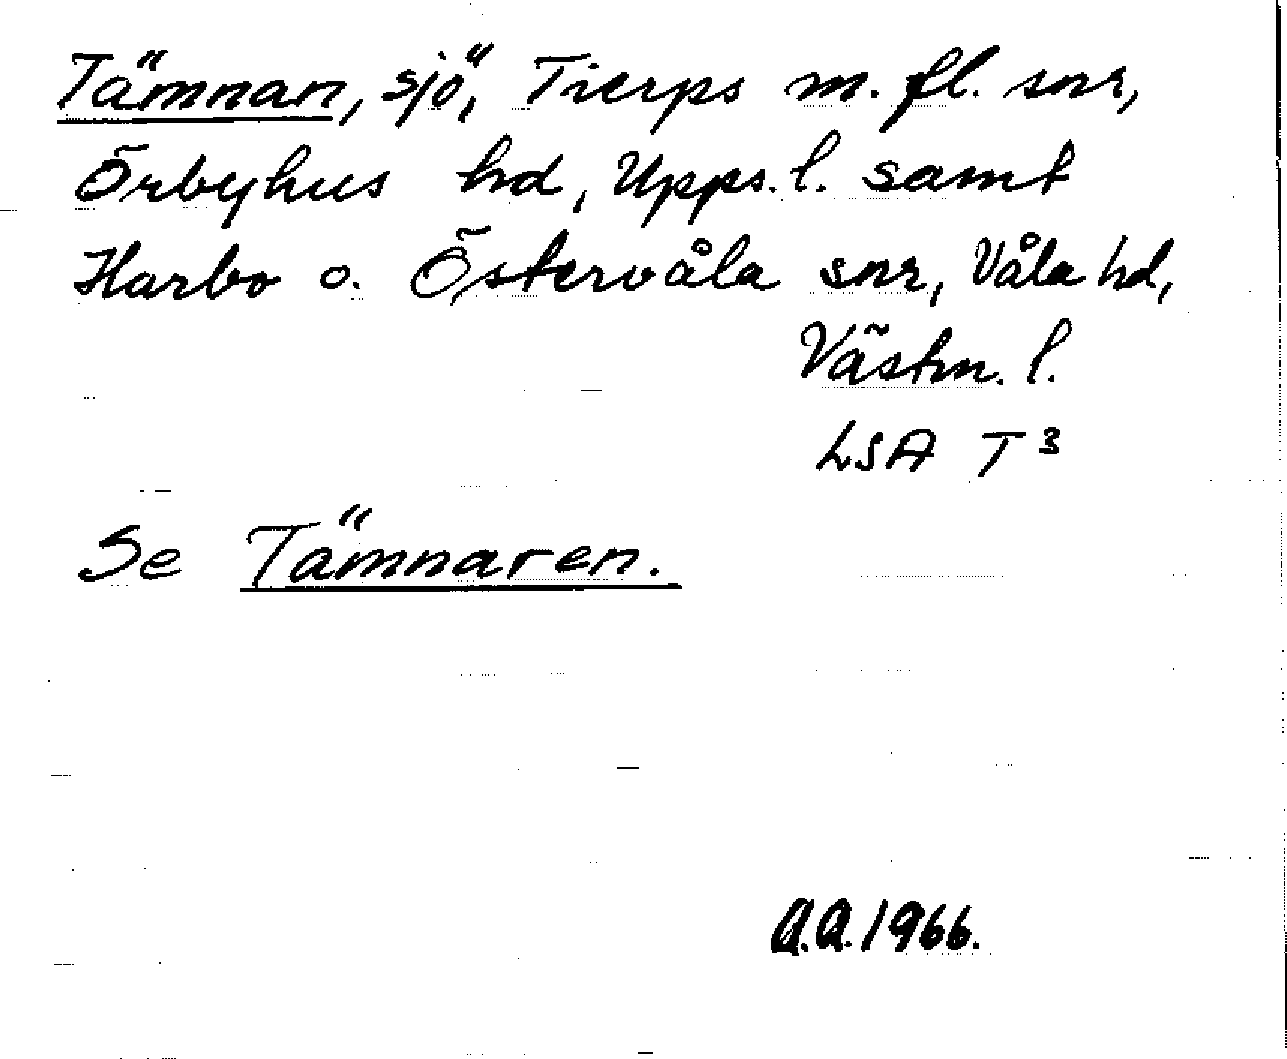 Tämnan, sjö, Tierps m. fl. snr,
Örbyhus hd, Upps. l. samt
Harbo o. Östervåla snr, Våla hd,
Västm. l.
LSA T 3
Se Tämnaren.
A.A. 1966.